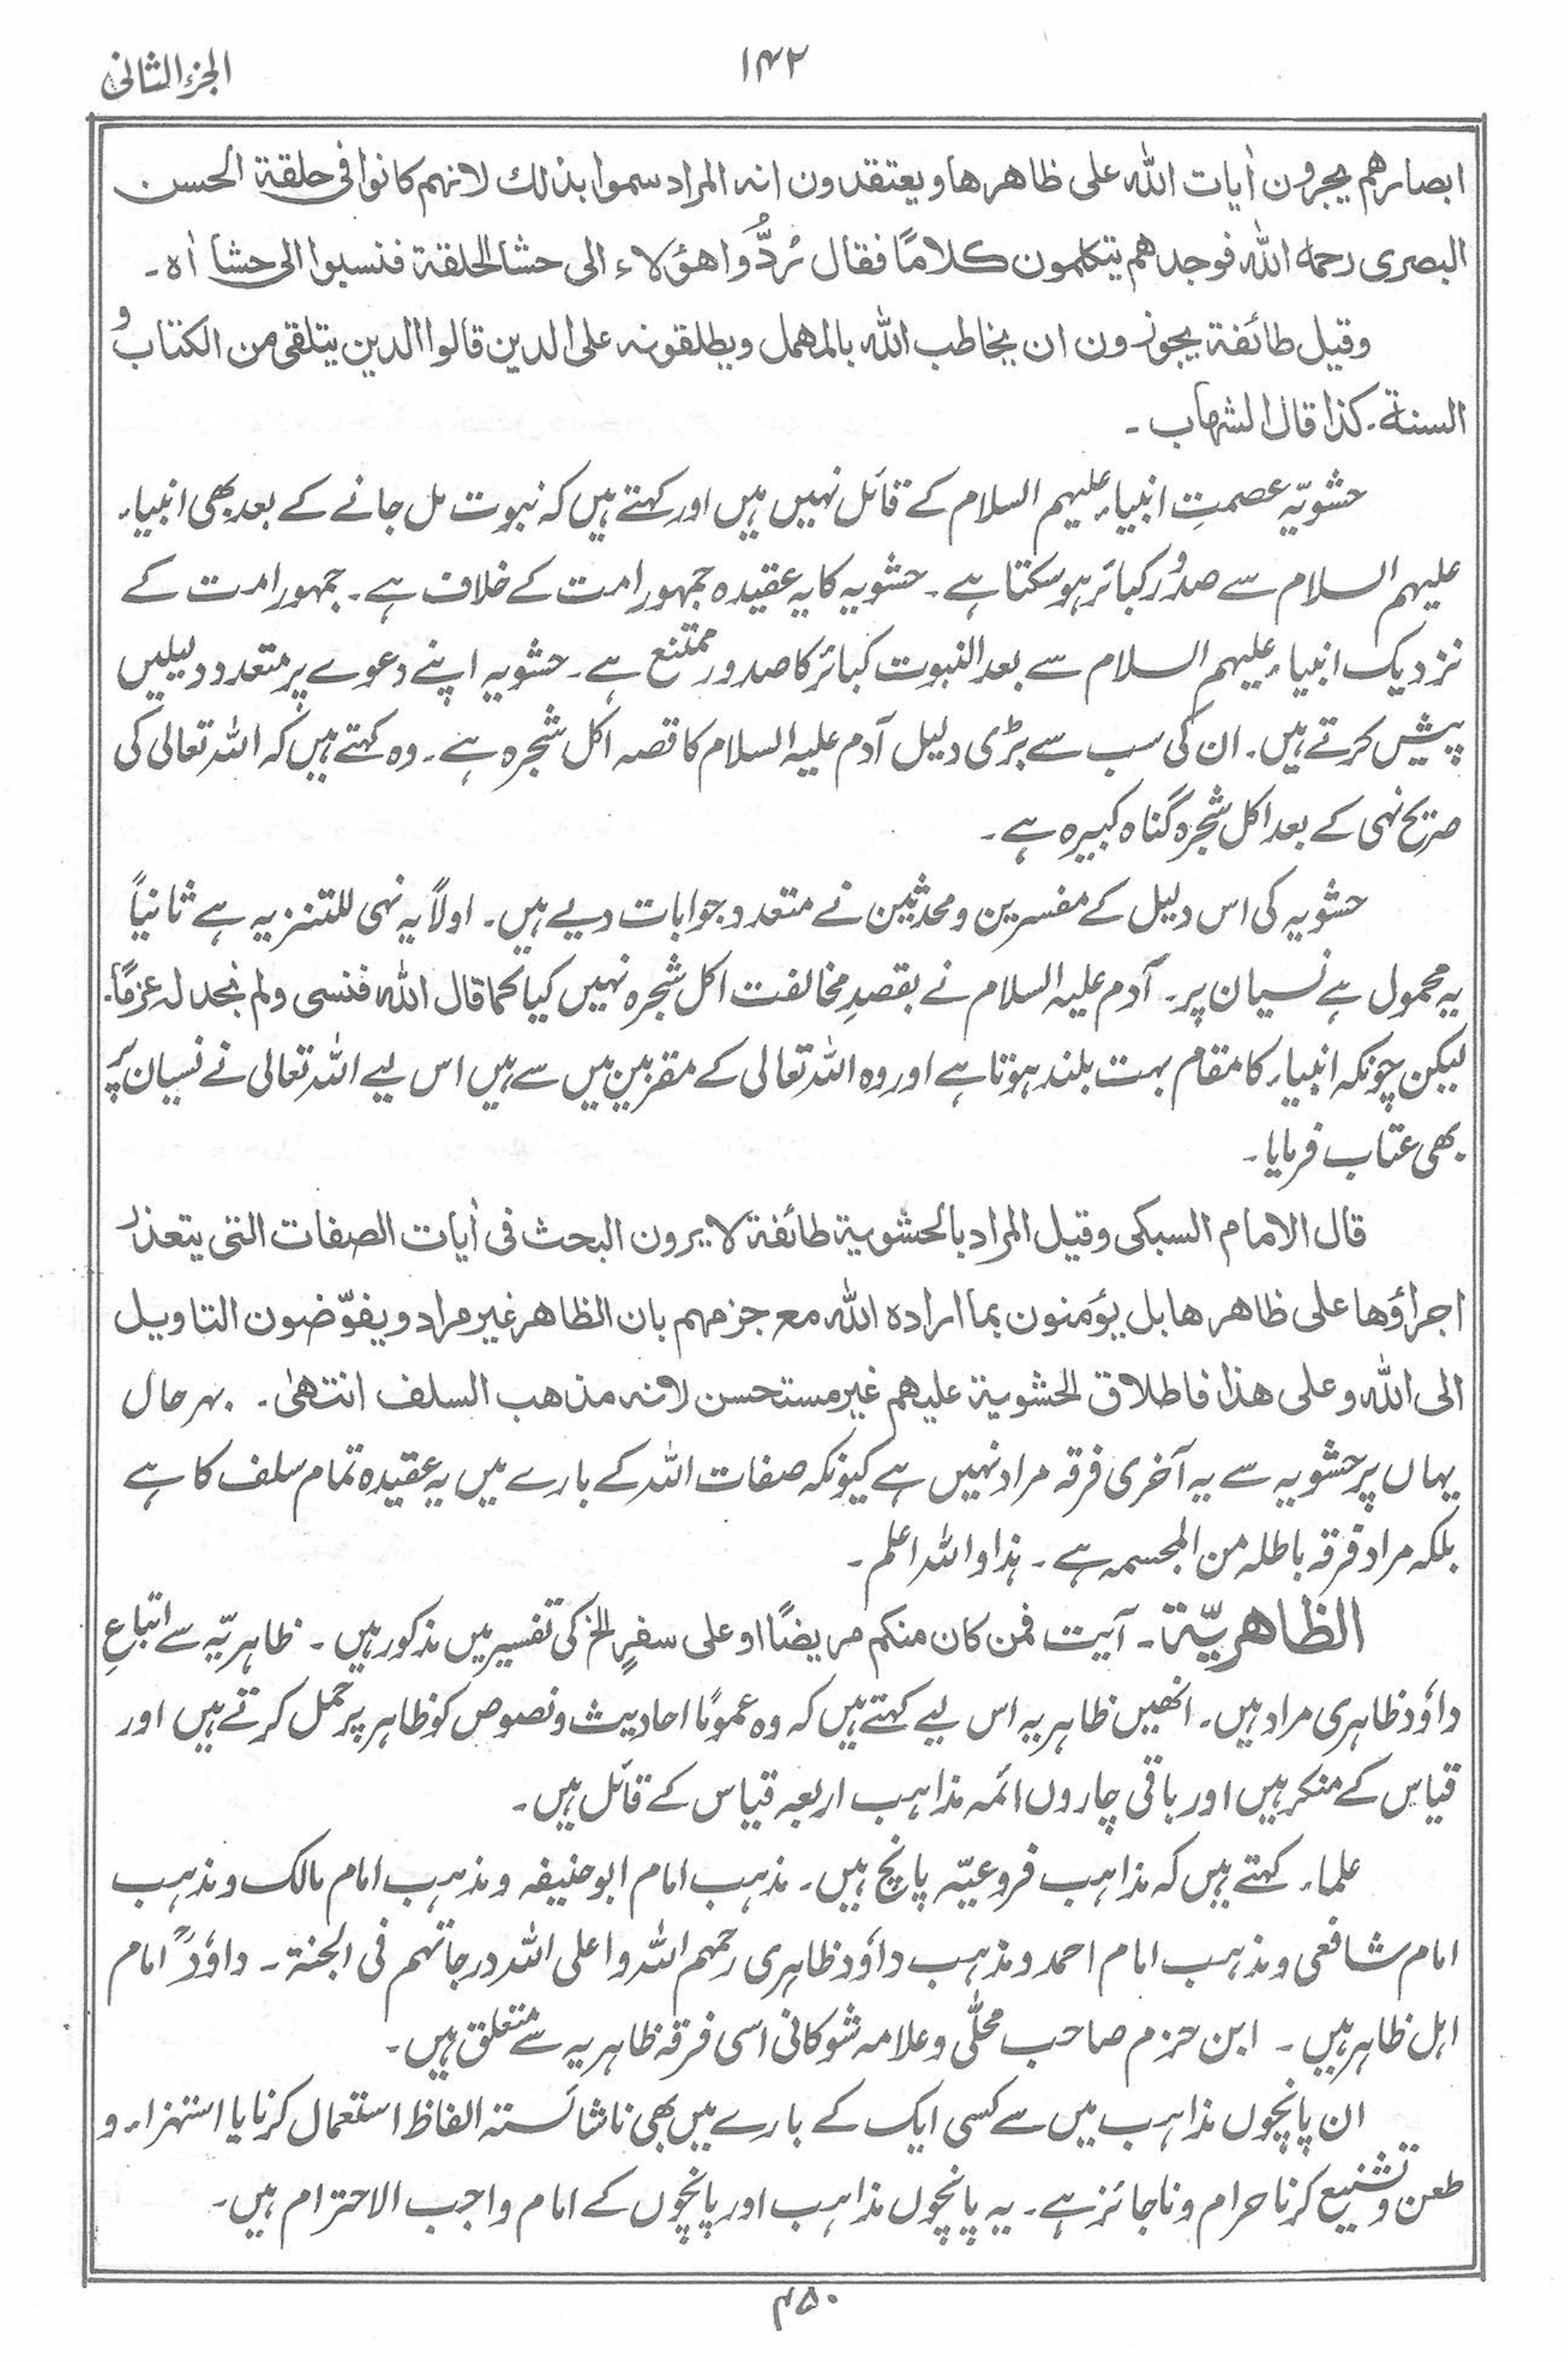 الجزء الثانی
۱۴۲
ابصارهم یجرون اٰیات اللہ علی ظاهرها ویعتقدون انہ المراد سموا بذلك لانهم کانوا فی حلقة الحسن
البصری رحمہ اللہ فوجدهم یتکلمون کلامًا فقال رُدُّوا هؤلاء الی حشا الحلقة فنسبوا الی حشا اٰہ ۔
وقیل طائفة یجوزون ان یخاطب اللہ بالمهمل ویطلقونہ علی الدین قالوا الدین یتلقی من الکتاب و
السنة۔ کذا قال الشهاب ۔
حشویّہ عصمتِ انبیاء علیہم السلام کے قائل نہیں ہیں اور کہتے ہیں کہ نبوت مل جانے کے بعد بھی انبیاء
علیہم السلام سے صدُورِ کبائر ہو سکتا ہے ۔ حشویہ کا یہ عقیدہ جمہور امت کے خلاف ہے ۔ جمہور امت کے
نزدیک انبیاء علیہم السلام سے بعد النبوت کبائر کا صدور ممتنع ہے ۔ حشویہ اپنے دعوے پر متعدد دلیلیں
پیش کرتے ہیں ۔ ان کی سب سے بڑی دلیل آدم علیہ السلام کا قصہ اکل شجرہ ہے ۔ وہ کہتے ہیں کہ اللہ تعالی کی
صریح نہی کے بعد اکل شجرہ گناہ کبیرہ ہے ۔
حشویہ کی اس دلیل کے مفسرین و محدثین نے متعدد جوابات دیے ہیں ۔ اولاً یہ نہی للتنزیہ ہے ثانیاً
یہ محمول ہے نسیان پر ۔ آدم علیہ السلام نے بقصدِ مخالفت اکل شجرہ نہیں کیا کما قال اللہ فنسی ولم نجد لہ عزمًا۔
لیکن چونکہ انبیاء کا مقام بہت بلند ہوتا ہے اور وہ اللہ تعالی کے مقربین میں سے ہیں اس لیے اللہ تعالی نے نسیان پر
بھی عتاب فرمایا ۔
قال الامام السبکی وقیل المراد بالحشویة طائفة لا یرون البحث فی اٰیات الصفات التی یتعذر
اجراؤها علی ظاهرها بل یؤمنون بما ارادہ اللہ مع جزمهم بان الظاهر غیر مراد ویفوّضون التاویل
الی اللہ وعلی هذا فاطلاق الحشویة علیهم غیر مستحسن لانہ مذهب السلف انتهیٰ ۔ بہر حال
یہاں پر حشویہ سے یہ آخری فرقہ مراد نہیں ہے کیونکہ صفات اللہ کے بارے میں یہ عقیدہ تمام سلف کا ہے
بلکہ مراد فرقہ باطلہ من المجسمہ ہے ۔ ہذا واللہ اعلم ۔
الظاهریّة ۔ آیت فمن کان منکم مریضًا او علی سفرٍ الخ کی تفسیر میں مذکور ہیں ۔ ظاہریّہ سے اتباعِ
داؤد ظاہری مراد ہیں ۔ انھیں ظاہریہ اس لیے کہتے ہیں کہ وہ عمومًا احادیث و نصوص کو ظاہر پر حمل کرتے ہیں اور
قیاس کے منکر ہیں اور باقی چاروں ائمہ مذاہب اربعہ قیاس کے قائل ہیں ۔
علماء کہتے ہیں کہ مذاہب فروعیّہ پانچ ہیں ۔ مذہب امام ابوحنیفہ و مذہب امام مالک و مذہب
امام شافعی و مذہب امام احمد و مذہب داؤد ظاہری رحمہم اللہ واعلی اللہ درجاتہم فی الجنة ۔ داؤدؒ امام
اہل ظاہر ہیں ۔ ابن حزم صاحب محلّٰی و علامہ شوکانی اسی فرقہ ظاہریہ سے متعلق ہیں ۔
ان پانچوں مذاہب میں سے کسی ایک کے بارے میں بھی ناشائستہ الفاظ استعمال کرنا یا استہزاء و
طعن و تشنیع کرنا حرام و ناجائز ہے ۔ یہ پانچوں مذاہب اور پانچوں کے امام واجب الاحترام ہیں ۔
۴۵۰